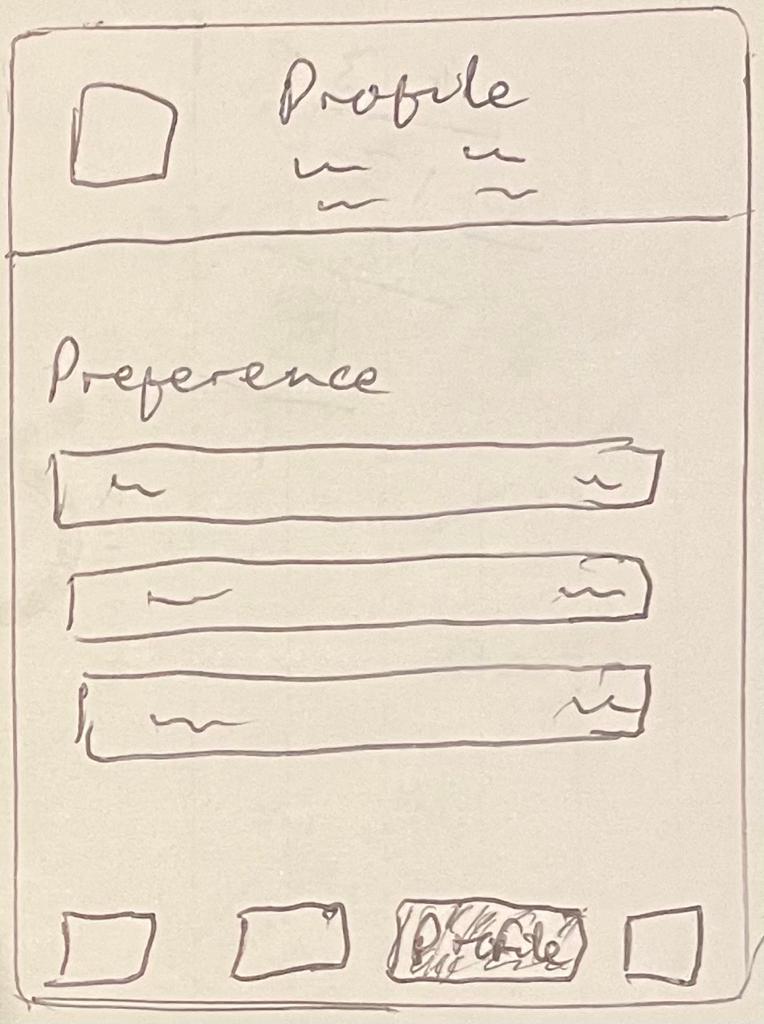 Profile
Preference
Profile